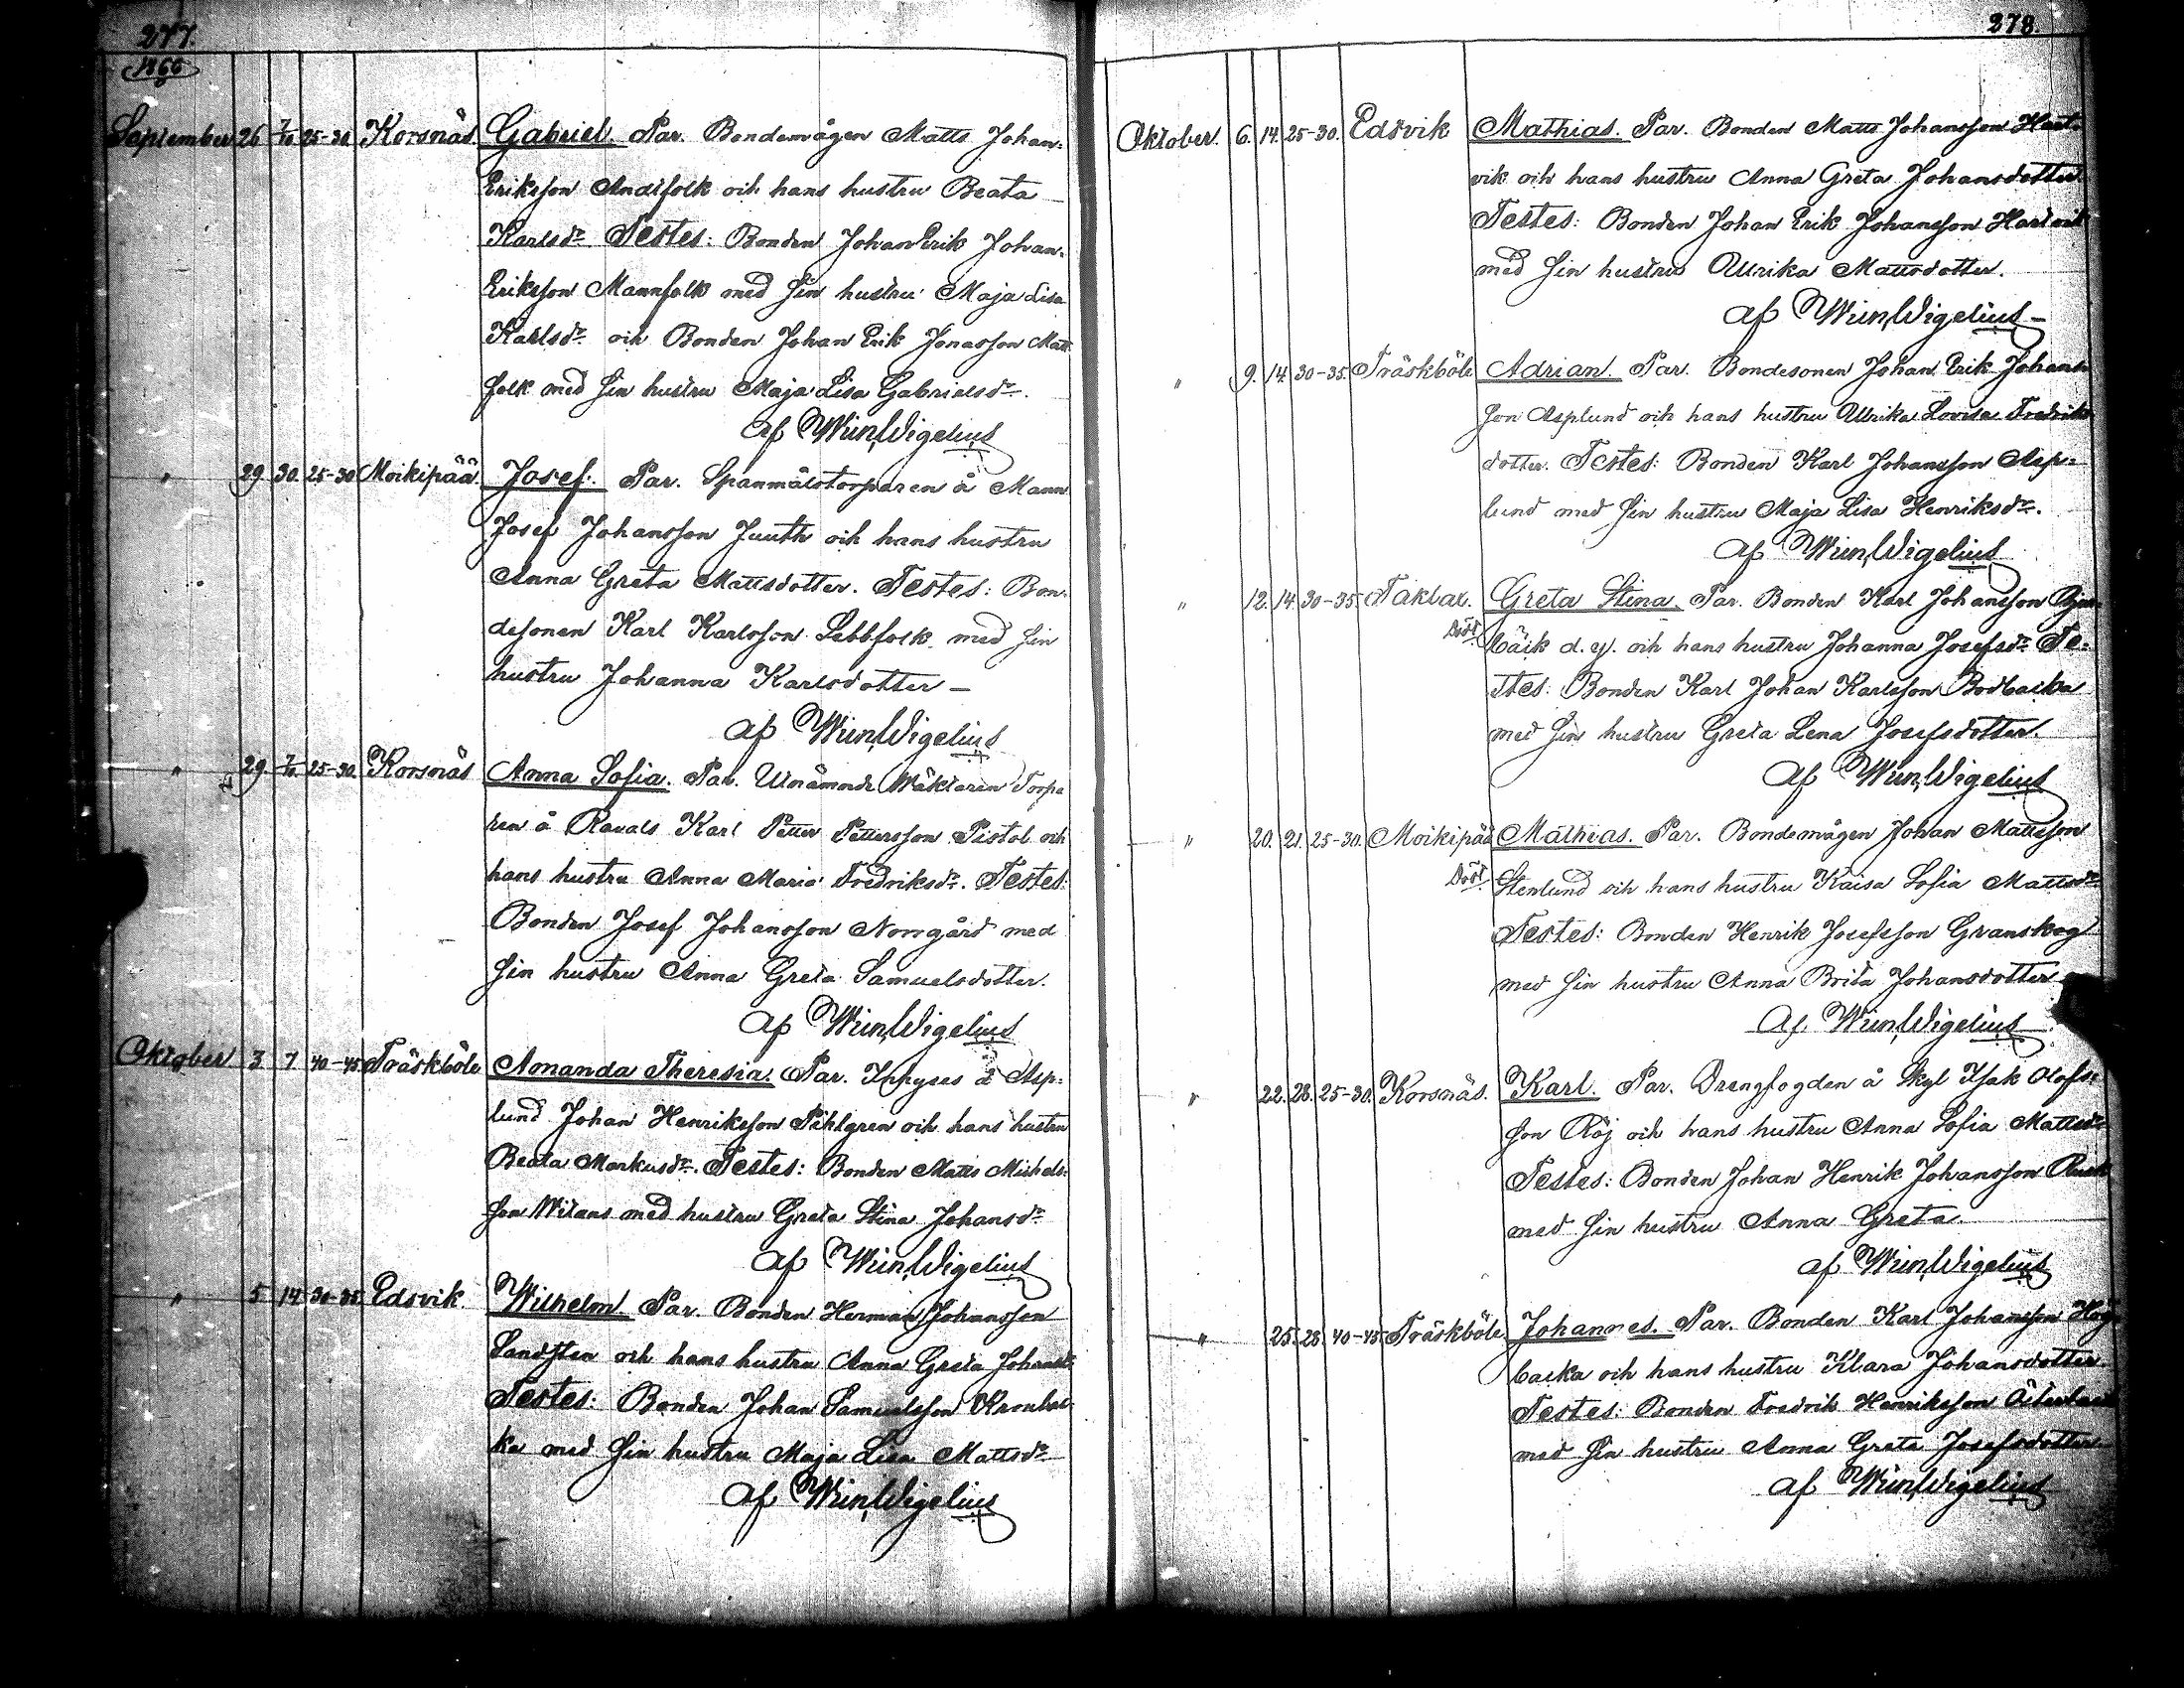 277.
1866
September 26 7/10 25-30 Korsnäs. Gabriel. Par. Bondemågen Matts Johan-
Eriksson Andifolk och hans hustru Beata
Karlsdr Testes: Bonden Johan Erik Johan-
Eriksson Mannfolk med sin hustru Maja Lisa
Karlsdr och Bonden Johan Erik Jonasson Matt
folk med sin hustru Maja Lisa Gabrielsdr.
af Wm Wigelius
" 29. 30. 25-30 Moikipää. Josef. Par. Spanmålstorparen å Mann
Josef Johansson Juuth och hans hustru
Anna Greta Mattsdotter. Testes: Bon-
desonen Karl Karlsson Lebbfolk med sin
hustru Johanna Karlsdotter –
af Wm Wigelius
" 29. 7/10. 25-30. Korsnäs Anna Sofia. Par. Utnämnde Wäktaren Torpa
ren å Ravals Karl Petter Pettersson Pistol och
hans hustru Anna Maria Fredriksdr. Testes:
Bonden Josef Johansson Norrgård med
sin hustru Anna Greta Samuelsdotter.
af Wm Wigelius
Oktober 3 7 40-45 Träskböle Amanda Theresia. Par. Inhyses å Asp-
lund Johan Henriksson Pihlgren och hans hustru
Beata Markusdr. Testes: Bonden Matts Michels-
son Witans med hustru Greta Stina Johansdr
af Wm Wigelius
" 5 14. 30-35. Edsvik Wilhelm Par. Bonden Herman Johansson
Sandsten och hans hustru Anna Greta Johansdr
Testes: Bonden Johan Samuelsson Kronbac-
ka med sin hustru Maja Lisa Mattsdr
af Wm Wigelius
278.
Oktober. 6. 14. 25-30. Edsvik Mathias. Par. Bonden Matts Johansson Hart-
vik och hans hustru Anna Greta Johansdotter
Testes: Bonden Johan Erik Johansson Hartvik
med sin hustru Ulrika Mattsdotter.
af Wm Wigelius –
" 9. 14. 30-35. Träskböle Adrian. Par. Bondesonen Johan Erik Johans-
son Asplund och hans hustru Ulrika Lovisa Fredriks
dotter. Testes: Bonden Karl Johansson Asp-
lund med sin hustru Maja Lisa Henriksdr.
af Wm Wigelius
" 12. 14. 30-35. Taklax. Greta Stina. Par. Bonden Karl Johansson
Död. bäck d. y. och hans hustru Johanna Josefsdr Te-
stes: Bonden Karl Johan Karlsson Bodbacka
med sin hustru Greta Lena Josefsdotter.
af Wm Wigelius
" 20. 21. 25-30. Moikipää Mathias. Par. Bondemågen Johan Mattsson
Död. Stenlund och hans hustru Kaisa Sofia Mattsdr
Testes: Bonden Henrik Josefsson Granskog
med sin hustru Anna Brita Johansdotter
af Wm Wigelius
" 22. 28. 25-30. Korsnäs. Karl. Par. Drengfogden å Skyl Isak Olofs-
son Röj och hans hustru Anna Sofia Mattsdr
Testes: Bonden Johan Henrik Johansson
med sin hustru Anna Greta.
af Wm Wigelius
" 25. 28. 40-45. Träskböle Johannes. Par. Bonden Karl Johansson Hög
backa och hans hustru Klara Johansdotter.
Testes: Bonden Fredrik Henriksson Österback
med sin hustru Anna Greta Josefsdotter
af Wm Wigelius